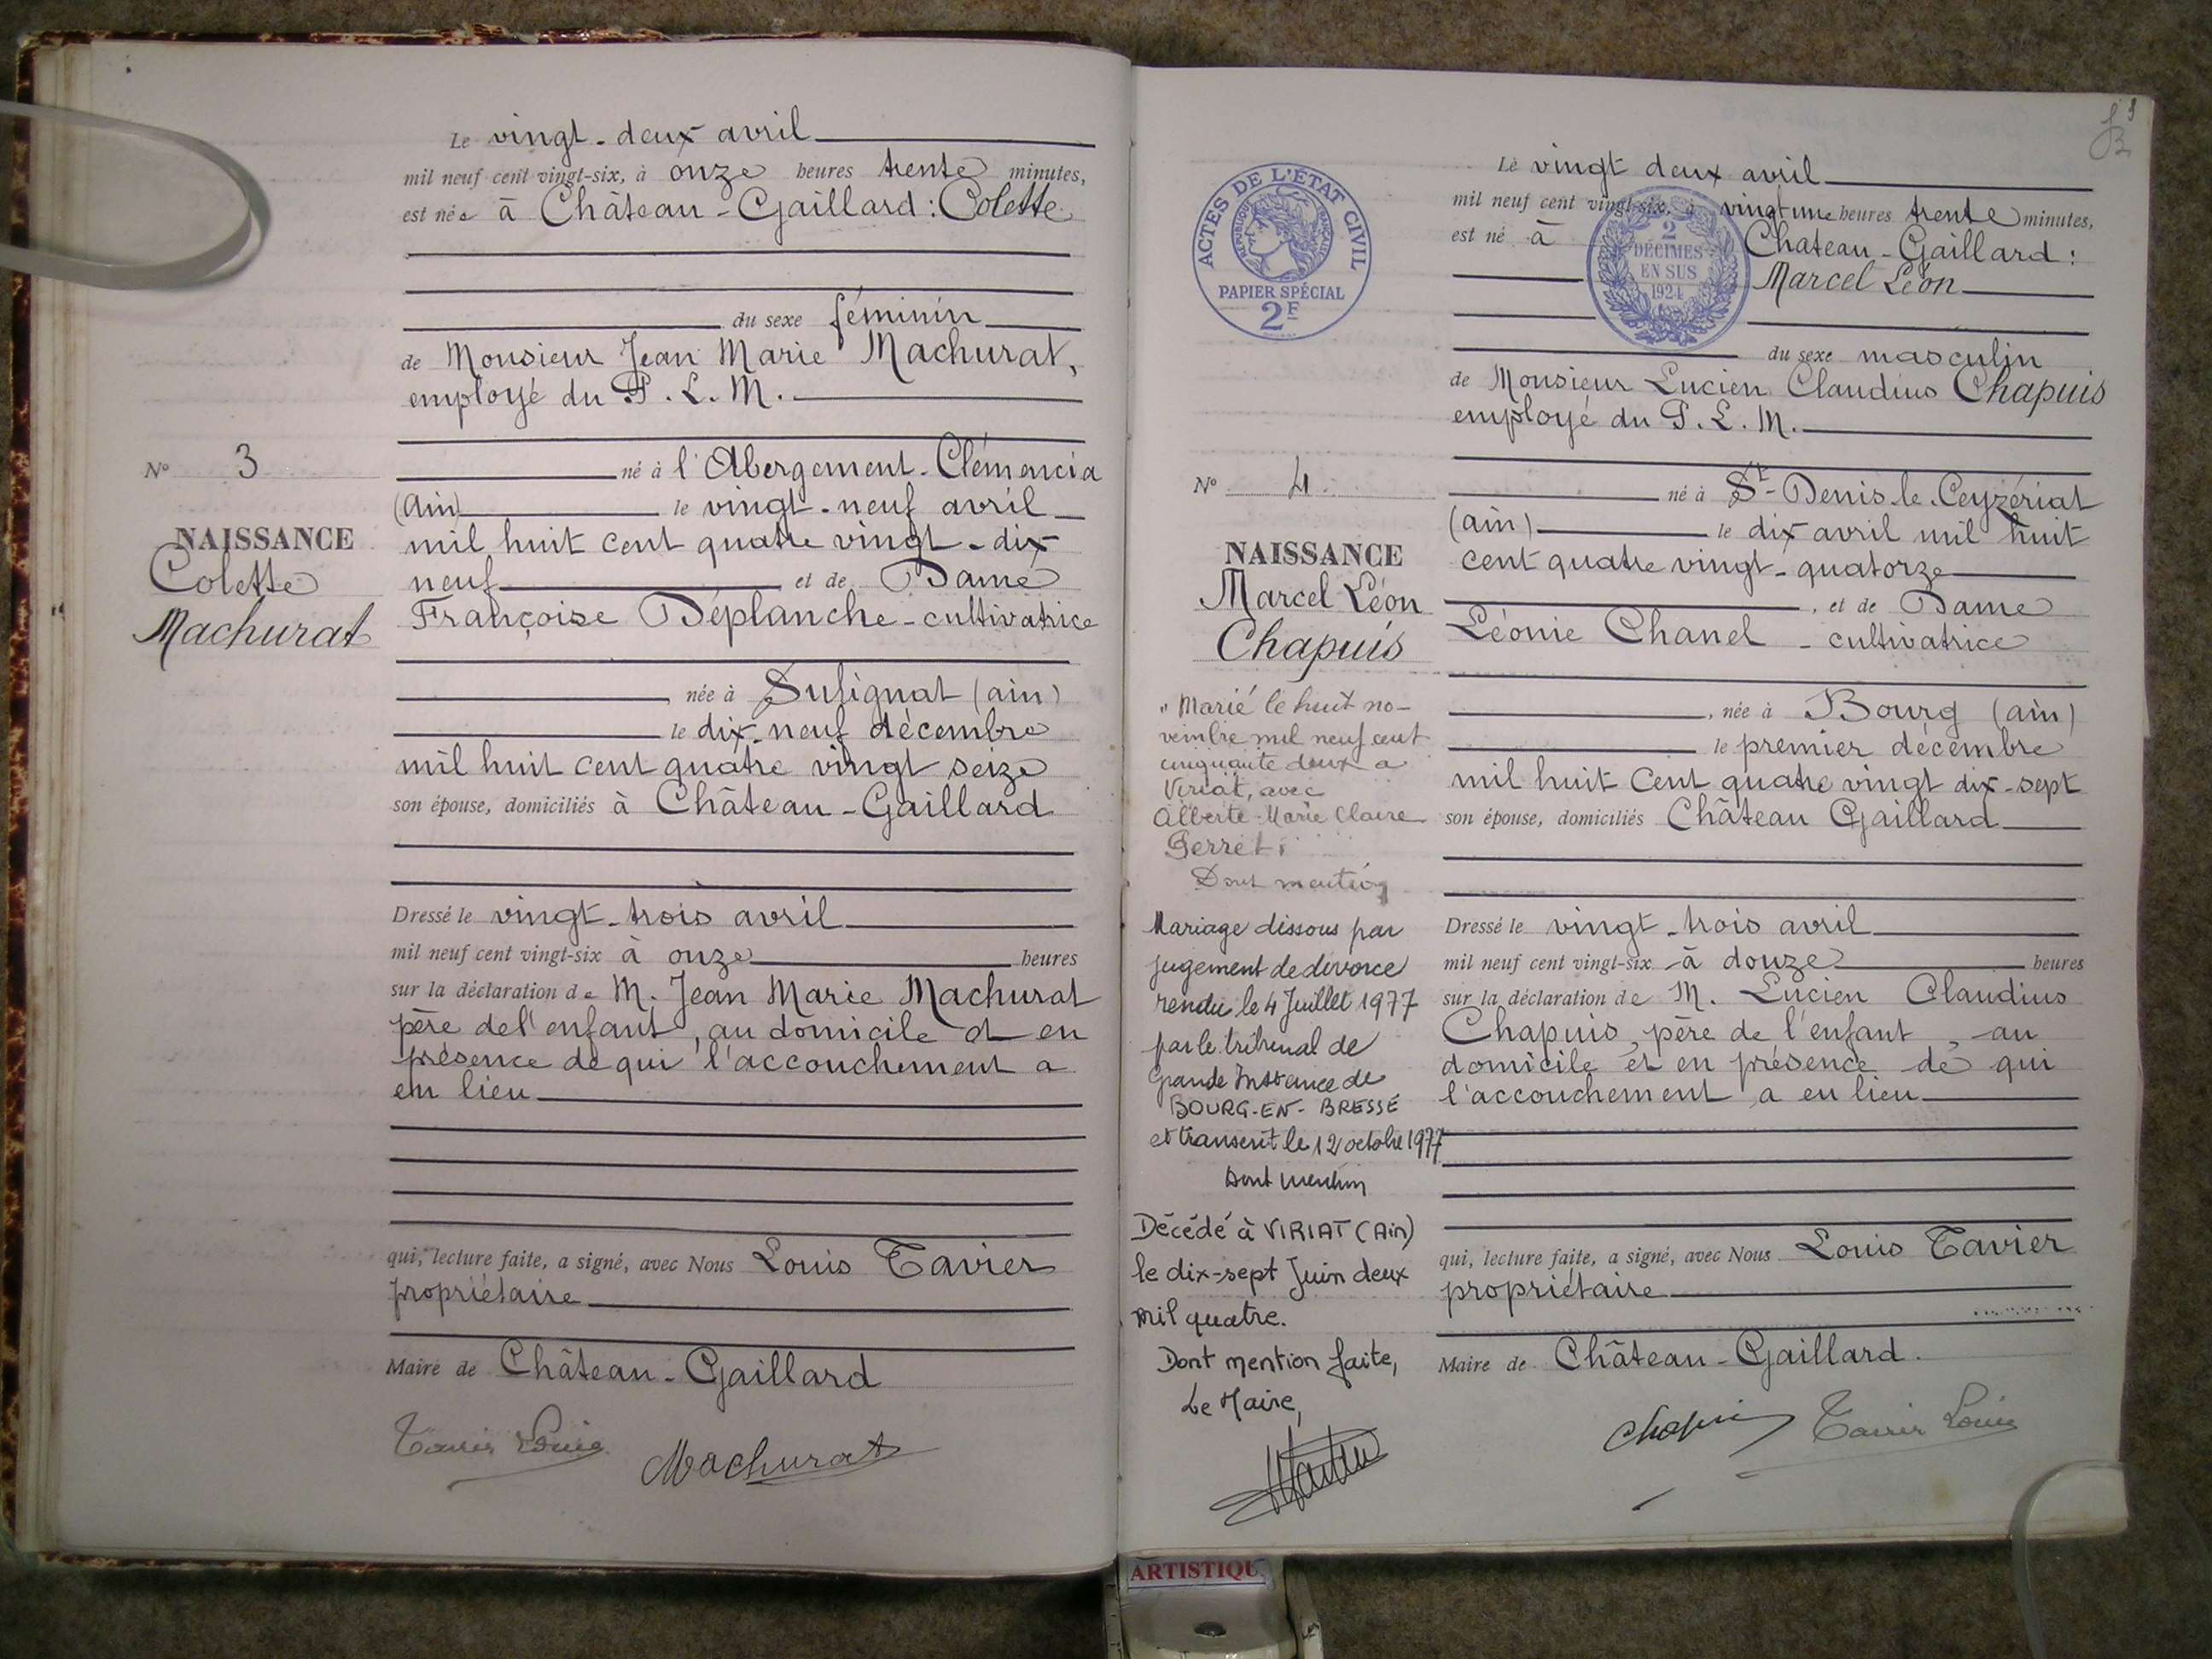 Le vingt-deux avril
mil neuf cent vingt-six, à onze heures trente minutes,
est née à Château-Gaillard: Colette
du sexe féminin
de Monsieur Jean Marie Machurat,
employé du P.L.M.
N° 3
né à l'Abergement-Clémencia
(Ain) le vingt-neuf avril
mil huit cent quatre vingt-dix
NAISSANCE
Colette
Machurat
neuf et de Dame
Françoise Déplanche-cultivatrice
née à Sulignat (ain)
le dix-neuf décembre
mil huit cent quatre vingt seize
son épouse, domiciliés à Château-Gaillard
Dressé le vingt-trois avril
mil neuf cent vingt-six à onze heures
sur la déclaration de M. Jean Marie Machurat
père de l'enfant, au domicile et en
présence de qui l'accouchement a
eu lieu
qui, lecture faite, a signé, avec Nous Louis Tavier
propriétaire
Maire de Château-Gaillard
Tavier Louis
Machurat
3
ACTES DE L'ÉTAT CIVIL
RÉPUBLIQUE FRANÇAISE
PAPIER SPÉCIAL
2F
2
DÉCIMES
EN SUS
1924
Le vingt deux avril
mil neuf cent vingt-six, à vingt une heures trente minutes,
est né à Chateau-Gaillard:
Marcel Léon
du sexe masculin
de Monsieur Lucien Claudius Chapuis
employé du P.L.M.
N° 4.
né à St-Denis-le-Ceyzériat
(ain) le dix avril mil huit
cent quatre vingt-quatorze
NAISSANCE
Marcel Léon
Chapuis
, et de Dame
Léonie Chanel - cultivatrice
, née à Bourg (ain)
le premier décembre
mil huit cent quatre vingt dix-sept
son épouse, domiciliés Château Gaillard
"Marié le huit no-
vembre mil neuf cent
cinquante deux a
Viriat, avec
Alberte Marie Claire
Perret.
Dont mention
Mariage dissous par
jugement de divorce
rendu le 4 Juillet 1977
par le tribunal de
Grande Instance de
BOURG-EN-BRESSE
et transcrit le 12 octobre 1977
Dont mention
Décédé à VIRIAT (Ain)
le dix-sept Juin deux
mil quatre.
Dont mention faite,
Le Maire,
Dressé le vingt-trois avril
mil neuf cent vingt-six à douze heures
sur la déclaration de M. Lucien Claudius
Chapuis, père de l'enfant, au
domicile et en présence de qui
l'accouchement a eu lieu
qui, lecture faite, a signé, avec Nous Louis Tavier
propriétaire
Maire de Château-Gaillard.
Chapuis
Tavier Louis
ARTISTIQU